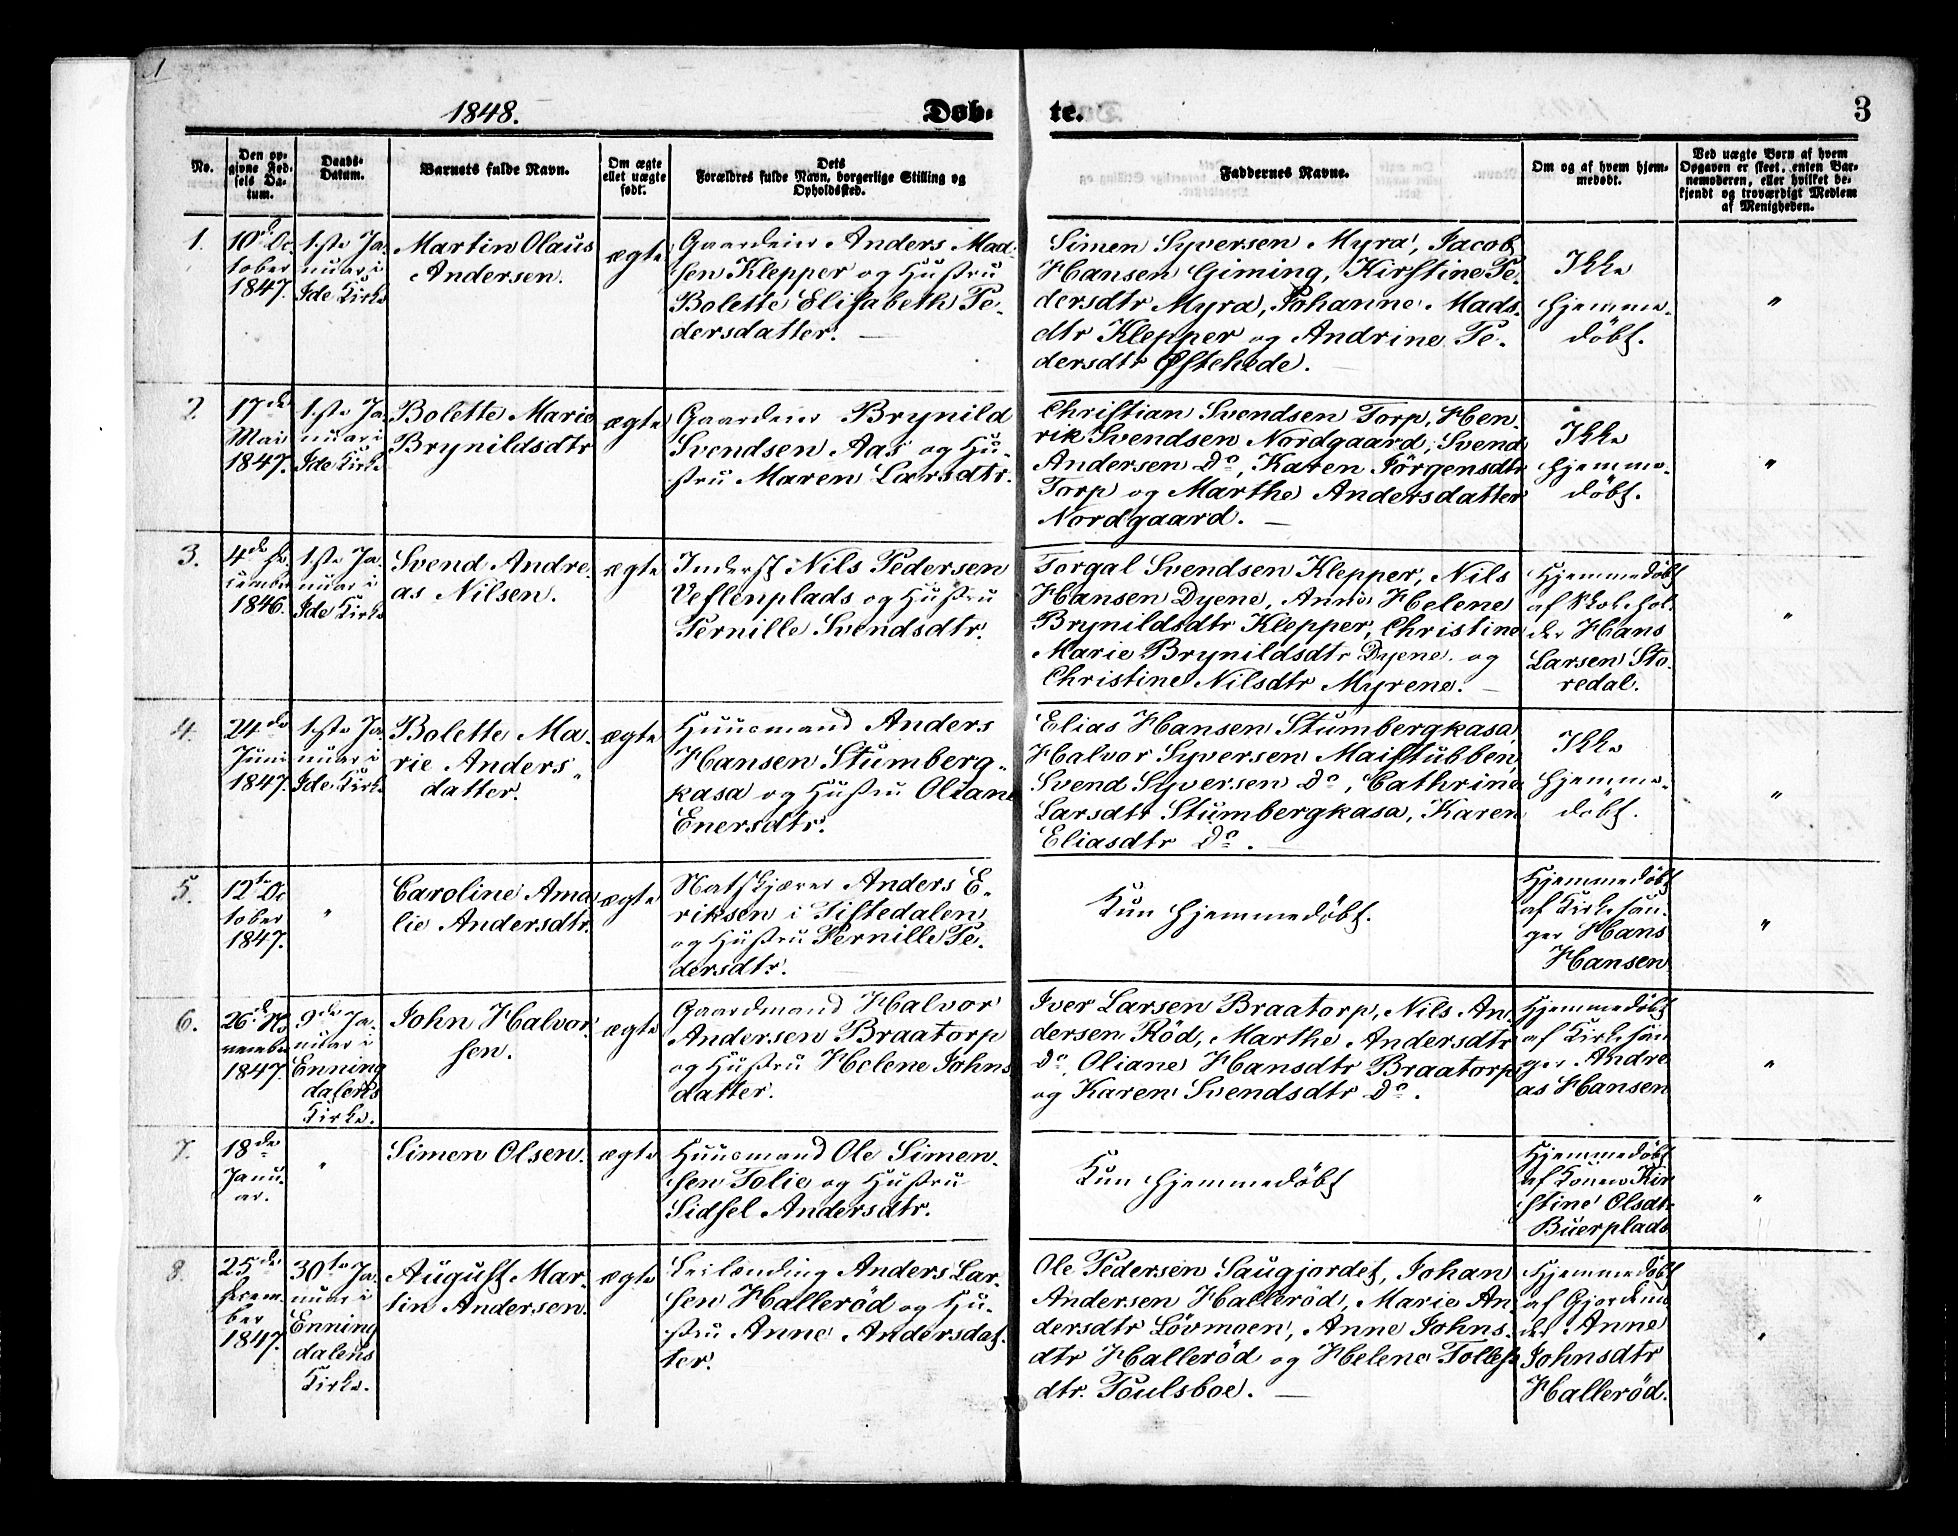 1
1848.
Døb-
te.
3
No.
Den op-
givne Fød-
sels Da-
tum.
Daabs-
Datum.
Barnets fulde Navn.
Om ægte
ellet uægte
født.
Dets
Forældres fulde Navn, borgerlige Stilling og
Opholdssted.
Faddernes Navne.
Om og af hvem hjem-
medøbt.
Ved uægte Børn af hvem
Opgaven er skeet, enten Bar-
nemoderen, eller hvilket be-
kjendt og troværdigt Medlem
af Menigheden.
1.
10de Oc
tober
1847.
1ste Ja-
nuar i
Ide Kirke
Martin Olaus
Andersen.
ægte
Gaardeier Anders Mad-
sen Klepper og Hustru
Bolette Elisabeth Pe-
dersdatter. —
Simen Syversen Myra, Jacob
Hansen Giming, Kirstine Pe-
dersdtr Myra, Johanne Mads-
dtr Klepper og Andrine Pe-
dersdtr Østehede.
Ikke
hjemme-
døbt.
"
2.
17de
Mai
1847.
1ste Ja-
nuar i
Ide Kirke
Bolette Marie
Brynildsdtr
ægte
Gaardeier Brynild
Svendsen Aas og Hu-
stru Maren Larsdtr.
Christian Svendsen Torp, Hen-
rik Svendsen Nordgaard, Svend
Andersen Do, Karen Jörgensdtr
Torp og Marthe Andersdatter
Nordgaard. —
Ikke
hjemme-
døbt.
"
3.
4de De-
cember
1846.
1ste Ja-
nuar i
Ide Kirke
Svend Andre-
as Nilsen.
ægte
Inderst Nils Pedersen
Veslenplads og Hustru
Pernille Svendsdtr.
Torgal Svendsen Klepper, Nils
Hansen Dyene, Anne Helene
Brynildsdtr Klepper, Christine
Marie Brynildsdtr Dyene og
Christine Nilsdtr Myrene. —
Hjemmedøbt
af Skolehol-
der Hans
Larsen Sto-
redal.
"
4.
24de
Juni
1847.
1ste Ja-
nuar i
Ide Kirke
Bolette Ma-
rie Anders-
datter.
ægte
Huusmand Anders
Hansen Stumberg-
kasa og Hustru Oliane
Enersdtr.
Elias Hansen Stumbergkasa,
Halvor Syversen Maistubben,
Svend Syversen Do, Cathrine
Larsdtr Stumbergkasa, Karen
Eliasdtr Do. —
Ikke
hjemme-
døbt.
"
5.
12te Oc
tober
1847.
"
Caroline Ama
lie Andersdtr.
ægte
Natskjærer Anders E-
riksen i Tistedalen
og Hustru Pernille Pe-
dersdtr.
Kun hjemmedøbt.
Hjemmedøbt
af Kirkesan-
ger Hans
Hansen
"
6.
26de No
vember
1847.
9de Ja-
nuar i
Enning
dalens
Kirke.
John Halvor-
sen.
ægte
Gaardmand Halvor
Andersen Braatorp
og Hustru Helene Johns
datter.
Iver Larsen Braatorp, Nils An-
dersen Röd, Marthe Andersdtr
do, Oliane Hansdtr Braatorp
og Karen Svendsdtr Do.
Hjemmedøbt
af Kirkesan-
ger Andre
as Hansen
"
7.
18de
Janu-
ar.
"
Simen Olsen.
ægte
Huusmand Ole Simen-
sen Tolie og Hustru
Sidsel Andersdtr.
Kun hjemmedøbt
Hjemmedøbt
af Konen Kir
stine Olsdtr
Buerplads
"
8.
25de
Decem-
ber
1847.
30te Ja-
nuar i
Enning
dalens
Kirke.
August Mar-
tin Andersen.
ægte
Leilænding Anders Lar-
sen Halleröd og Hu-
stru Anne Andersdat-
ter.
Ole Pedersen Saugjordet, Johan
Andersen Halleröd, Marie An-
dersdtr Lövmoen, Anne Johns-
dtr Halleröd og Helene Tolless
dtr. Poulsboe. —
Hjemmedøbt
af Gjordemo
der Anne
Johnsdtr
Halleröd.
"